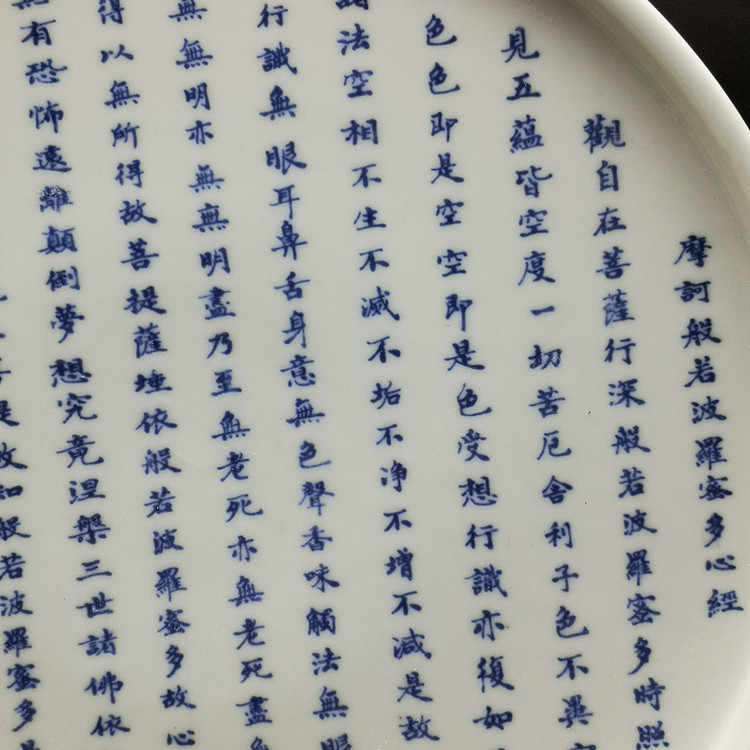 摩訶般若波羅蜜多心經
觀自在菩薩行深般若波羅蜜多時照
見五蘊皆空度一切苦厄舍利子色不異
色色即是空空即是色受想行識亦復如
諸法空相不生不滅不垢不净不增不減是故
行識無眼耳鼻舌身意無色聲香味觸法無眼
無無明亦無無明盡乃至無老死亦無老死盡
得以無所得故菩提薩埵依般若波羅蜜多故心
有恐怖遠離顛倒夢想究竟涅槃三世諸佛依
提故知般若波羅蜜多